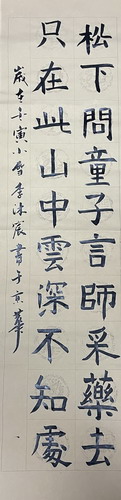 松下問童子言師采藥去
只在此山中雲深不知處
歲在壬寅小雪李沐宸書于京華